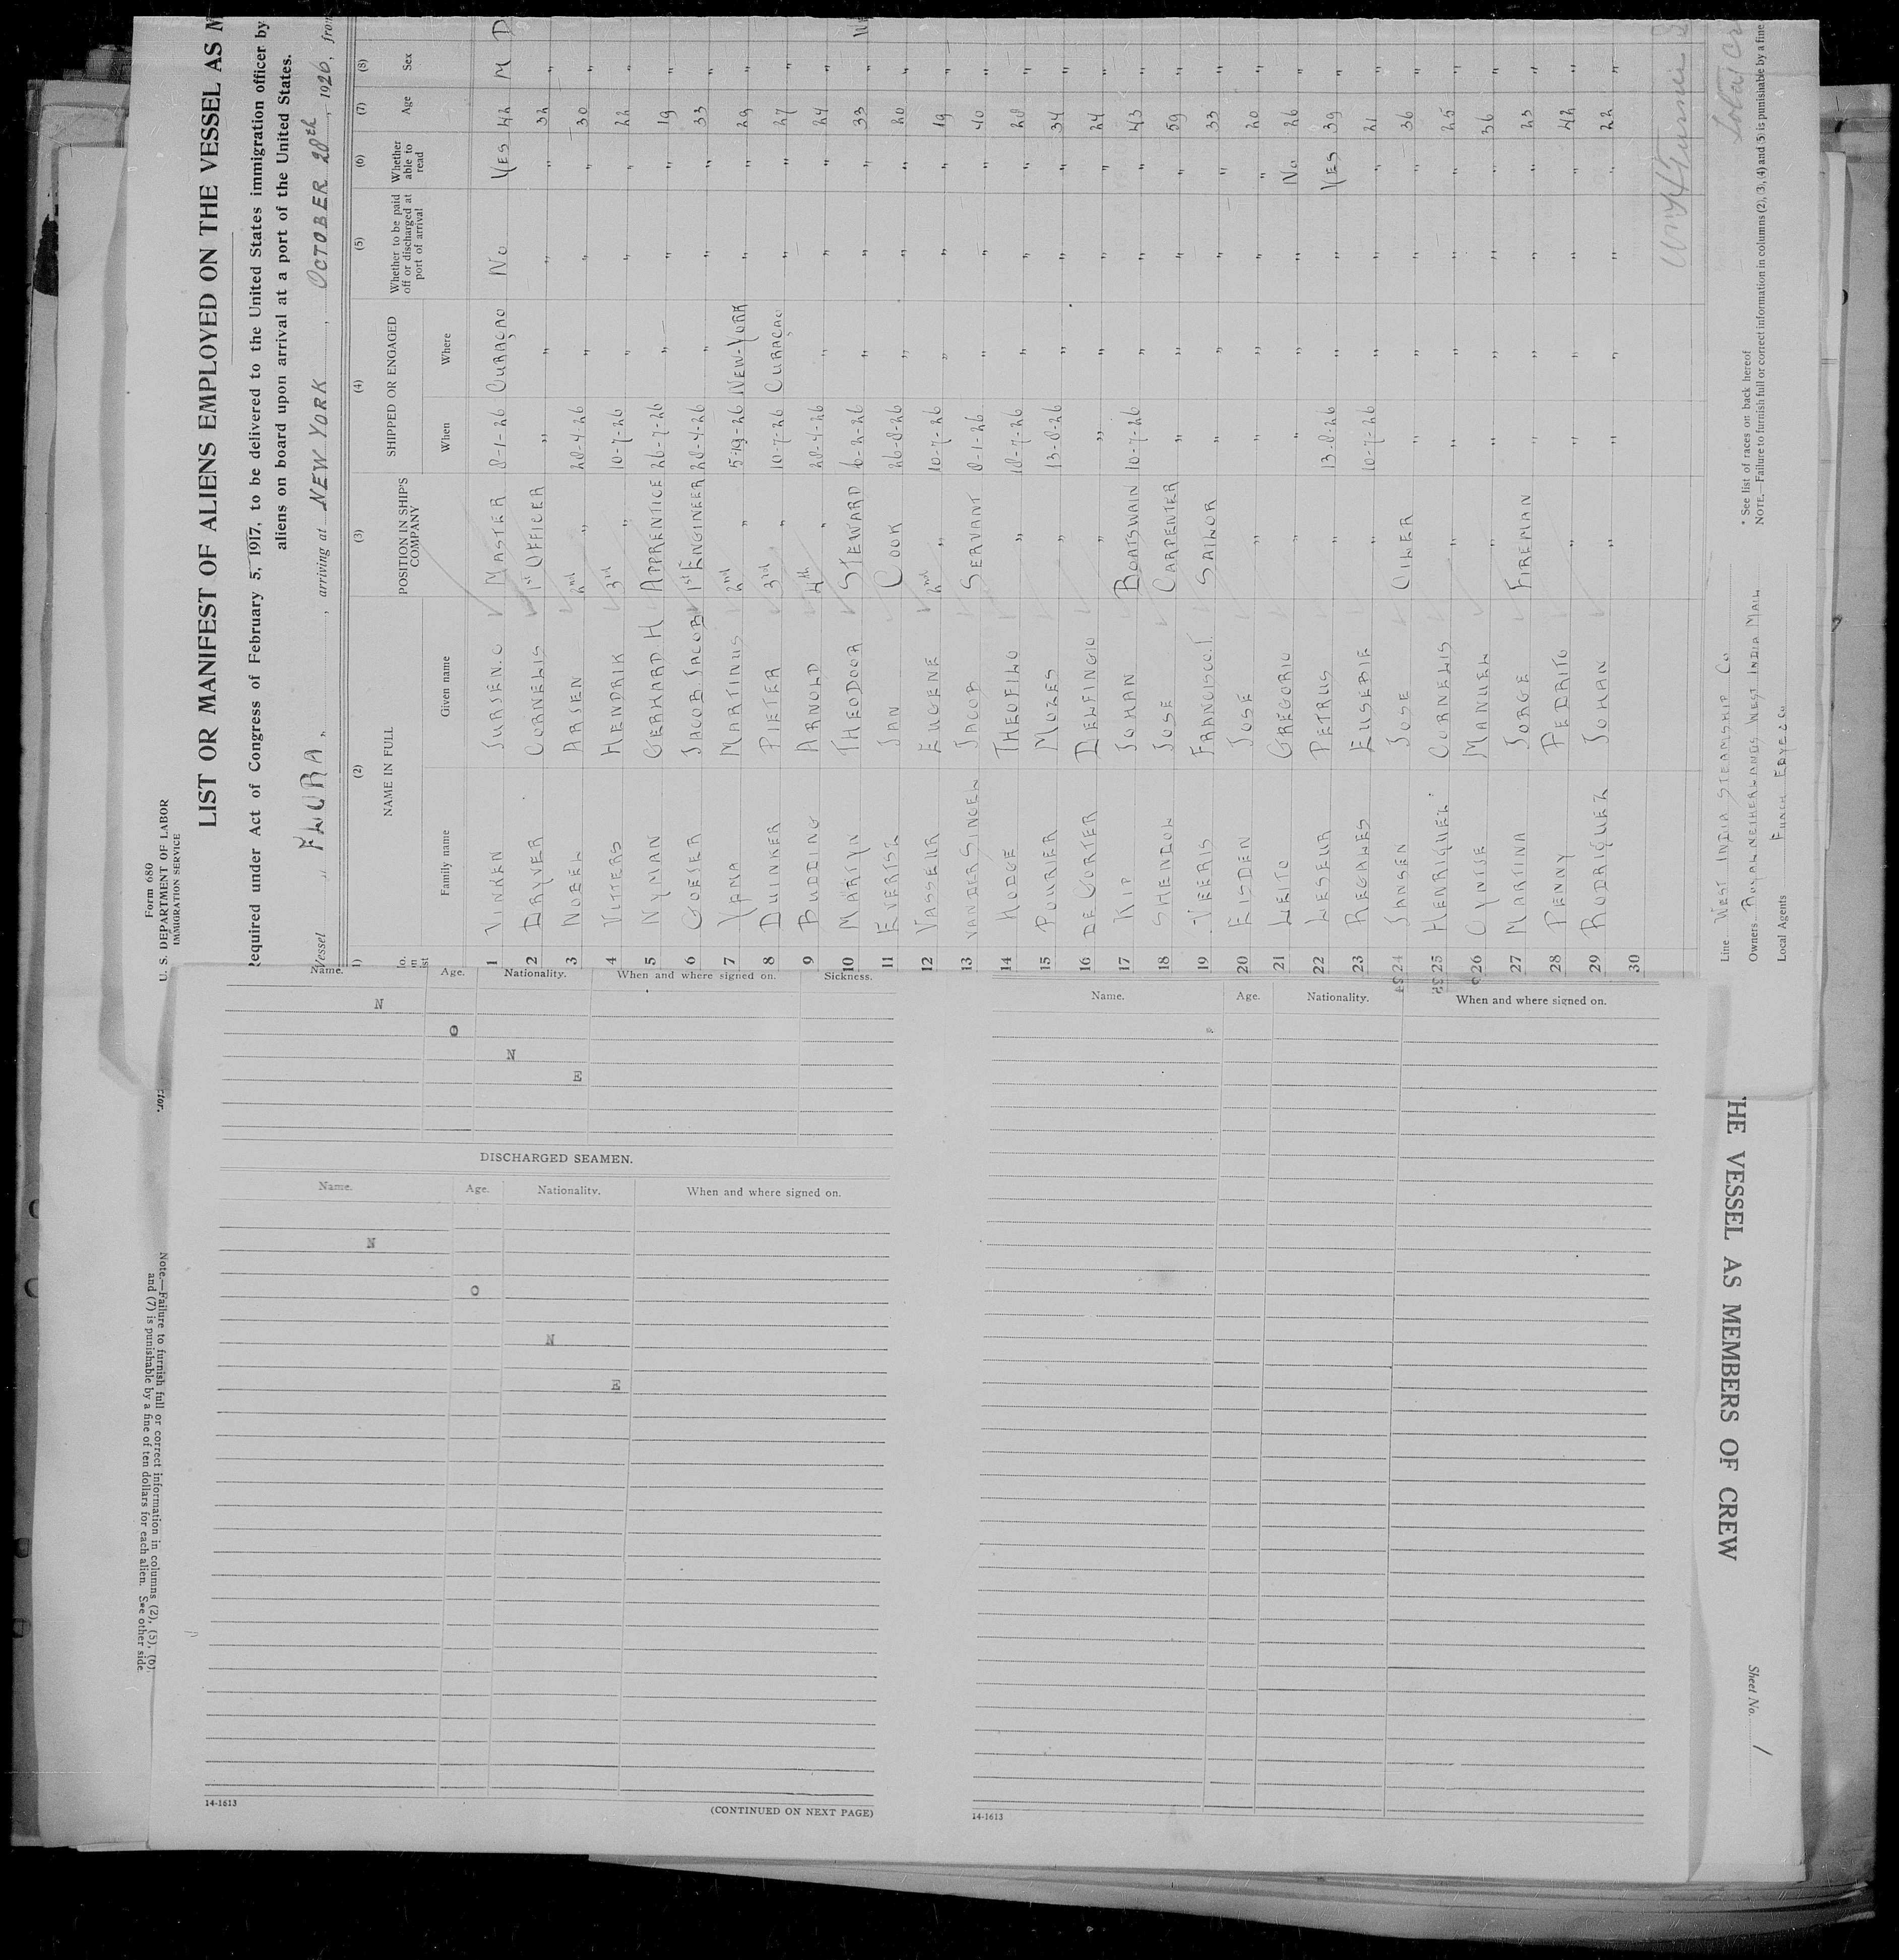 Form 680
U. S. DEPARTMENT OF LABOR
IMMIGRATION SERVICE
LIST OR MANIFEST OF ALIENS EMPLOYED ON THE VESSEL AS M
Required under Act of Congress of February 5, 1917, to be delivered to the United States immigration officer by
aliens on board upon arrival at a port of the United States.
Vessel FLORA, arriving at NEW YORK, OCTOBER 28th, 1926, from
(2) (3) (4) (5) (6) (7) (8)
NAME IN FULL POSITION IN SHIP'S COMPANY SHIPPED OR ENGAGED Whether to be paid off or discharged at port of arrival Whether able to read Age Sex
Family name Given name When Where
1 VINKEN JURSEN. C MASTER 8-1-26 CURAÇAO NO YES 42 M D
2 DRYVER CORNELIS 1st OFFICER " " " " 32 "
3 NOBEL ARSEN 2nd " 28-4-26 " " " 30 "
4 VUTTERS HENDRIK 3rd " 10-7-26 " " " 22 "
5 NYMAN GERHARD H APPRENTICE 26-7-26 " " " 19 "
6 GOESER JACOB. JACOB 1st ENGINEER 28-4-26 " " " 33 "
7 YPMA MARTINUS 2nd " 5-19-26 NEW-YORK " " 29 "
8 DUINKER PIETER 3rd " 10-7-26 CURAÇAO " " 27 "
9 BUDDING ARNOLD 4th " 28-4-26 " " " 24 "
10 MARTYN THEODOOR STEWARD 6-2-26 " " " 33 "
11 EVERTSZ JAN COOK 26-8-26 " " " 20 "
12 VASSEUR EUGENE 2nd " 10-7-26 " " " 19 "
13 VANDERSINGEL JACOB SERVANT 8-1-26 " " " 40 "
14 HODGE THEOFILO " 18-7-26 " " " 28 "
15 POURIER MOZES " 13-8-26 " " " 34 "
16 DE GORTER DELFINGIO " " " " " 24 "
17 KIP JOHAN BOATSWAIN 10-7-26 " " " 43 "
18 SHENDOL JOSE CARPENTER " " " " 59 "
19 VEERIS FRANCISCO. T. SAILOR " " " " 33 "
20 EISDEN JOSE " " " " " 20 "
21 LEITO GREGORIO " " " " NO 26 "
22 LESEUR PETRUS " 13-8-26 " " YES 39 "
23 REGALES EUSEBIE " 10-7-26 " " " 21 "
24 JANSEN JOSE OILER " " " " 36 "
25 HENRIQUEL CORNELIS " " " " " 25 "
26 OYNTJE MANUEL " " " " " 36 "
27 MARTINA JORGE FIREMAN " " " " 23 "
28 PENNY PEDRITO " " " " " 42 "
29 RODRIGUEZ JOHAN " " " " " 22 "
30
Line WEST INDIA STEAMSHIP Co
Owners ROYAL NETHERLANDS WEST INDIA MAIL
Local Agents FUNCH EDYE & Co
* See list of races on back hereof
NOTE.—Failure to furnish full or correct information in columns (2), (3), (4) and (5) is punishable by a fine
Name. Age. Nationality. When and where signed on. Sickness.
N
O
N
E
DISCHARGED SEAMEN.
Name. Age. Nationality. When and where signed on.
N
O
N
E
14-1613
(CONTINUED ON NEXT PAGE)
Name. Age. Nationality. When and where signed on.
14-1613
THE VESSEL AS MEMBERS OF CREW
Sheet No. 1
Note.—Failure to furnish full or correct information in columns (2), (5), (6),
and (7) is punishable by a fine of ten dollars for each alien. See other side